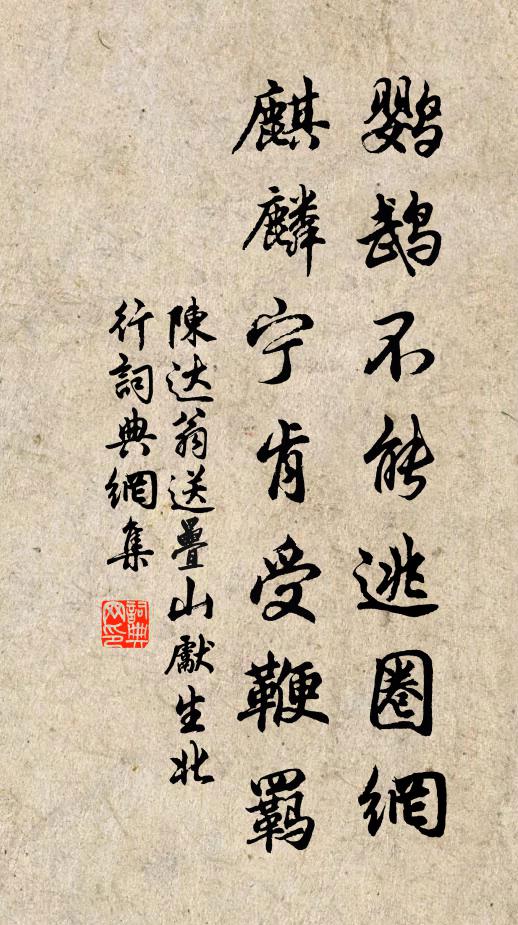 鹦鹉不能逃圈網
麒麟宁肯受鞭羁
陳达翁送疊山獻生北
行詞典網集
詞典网印